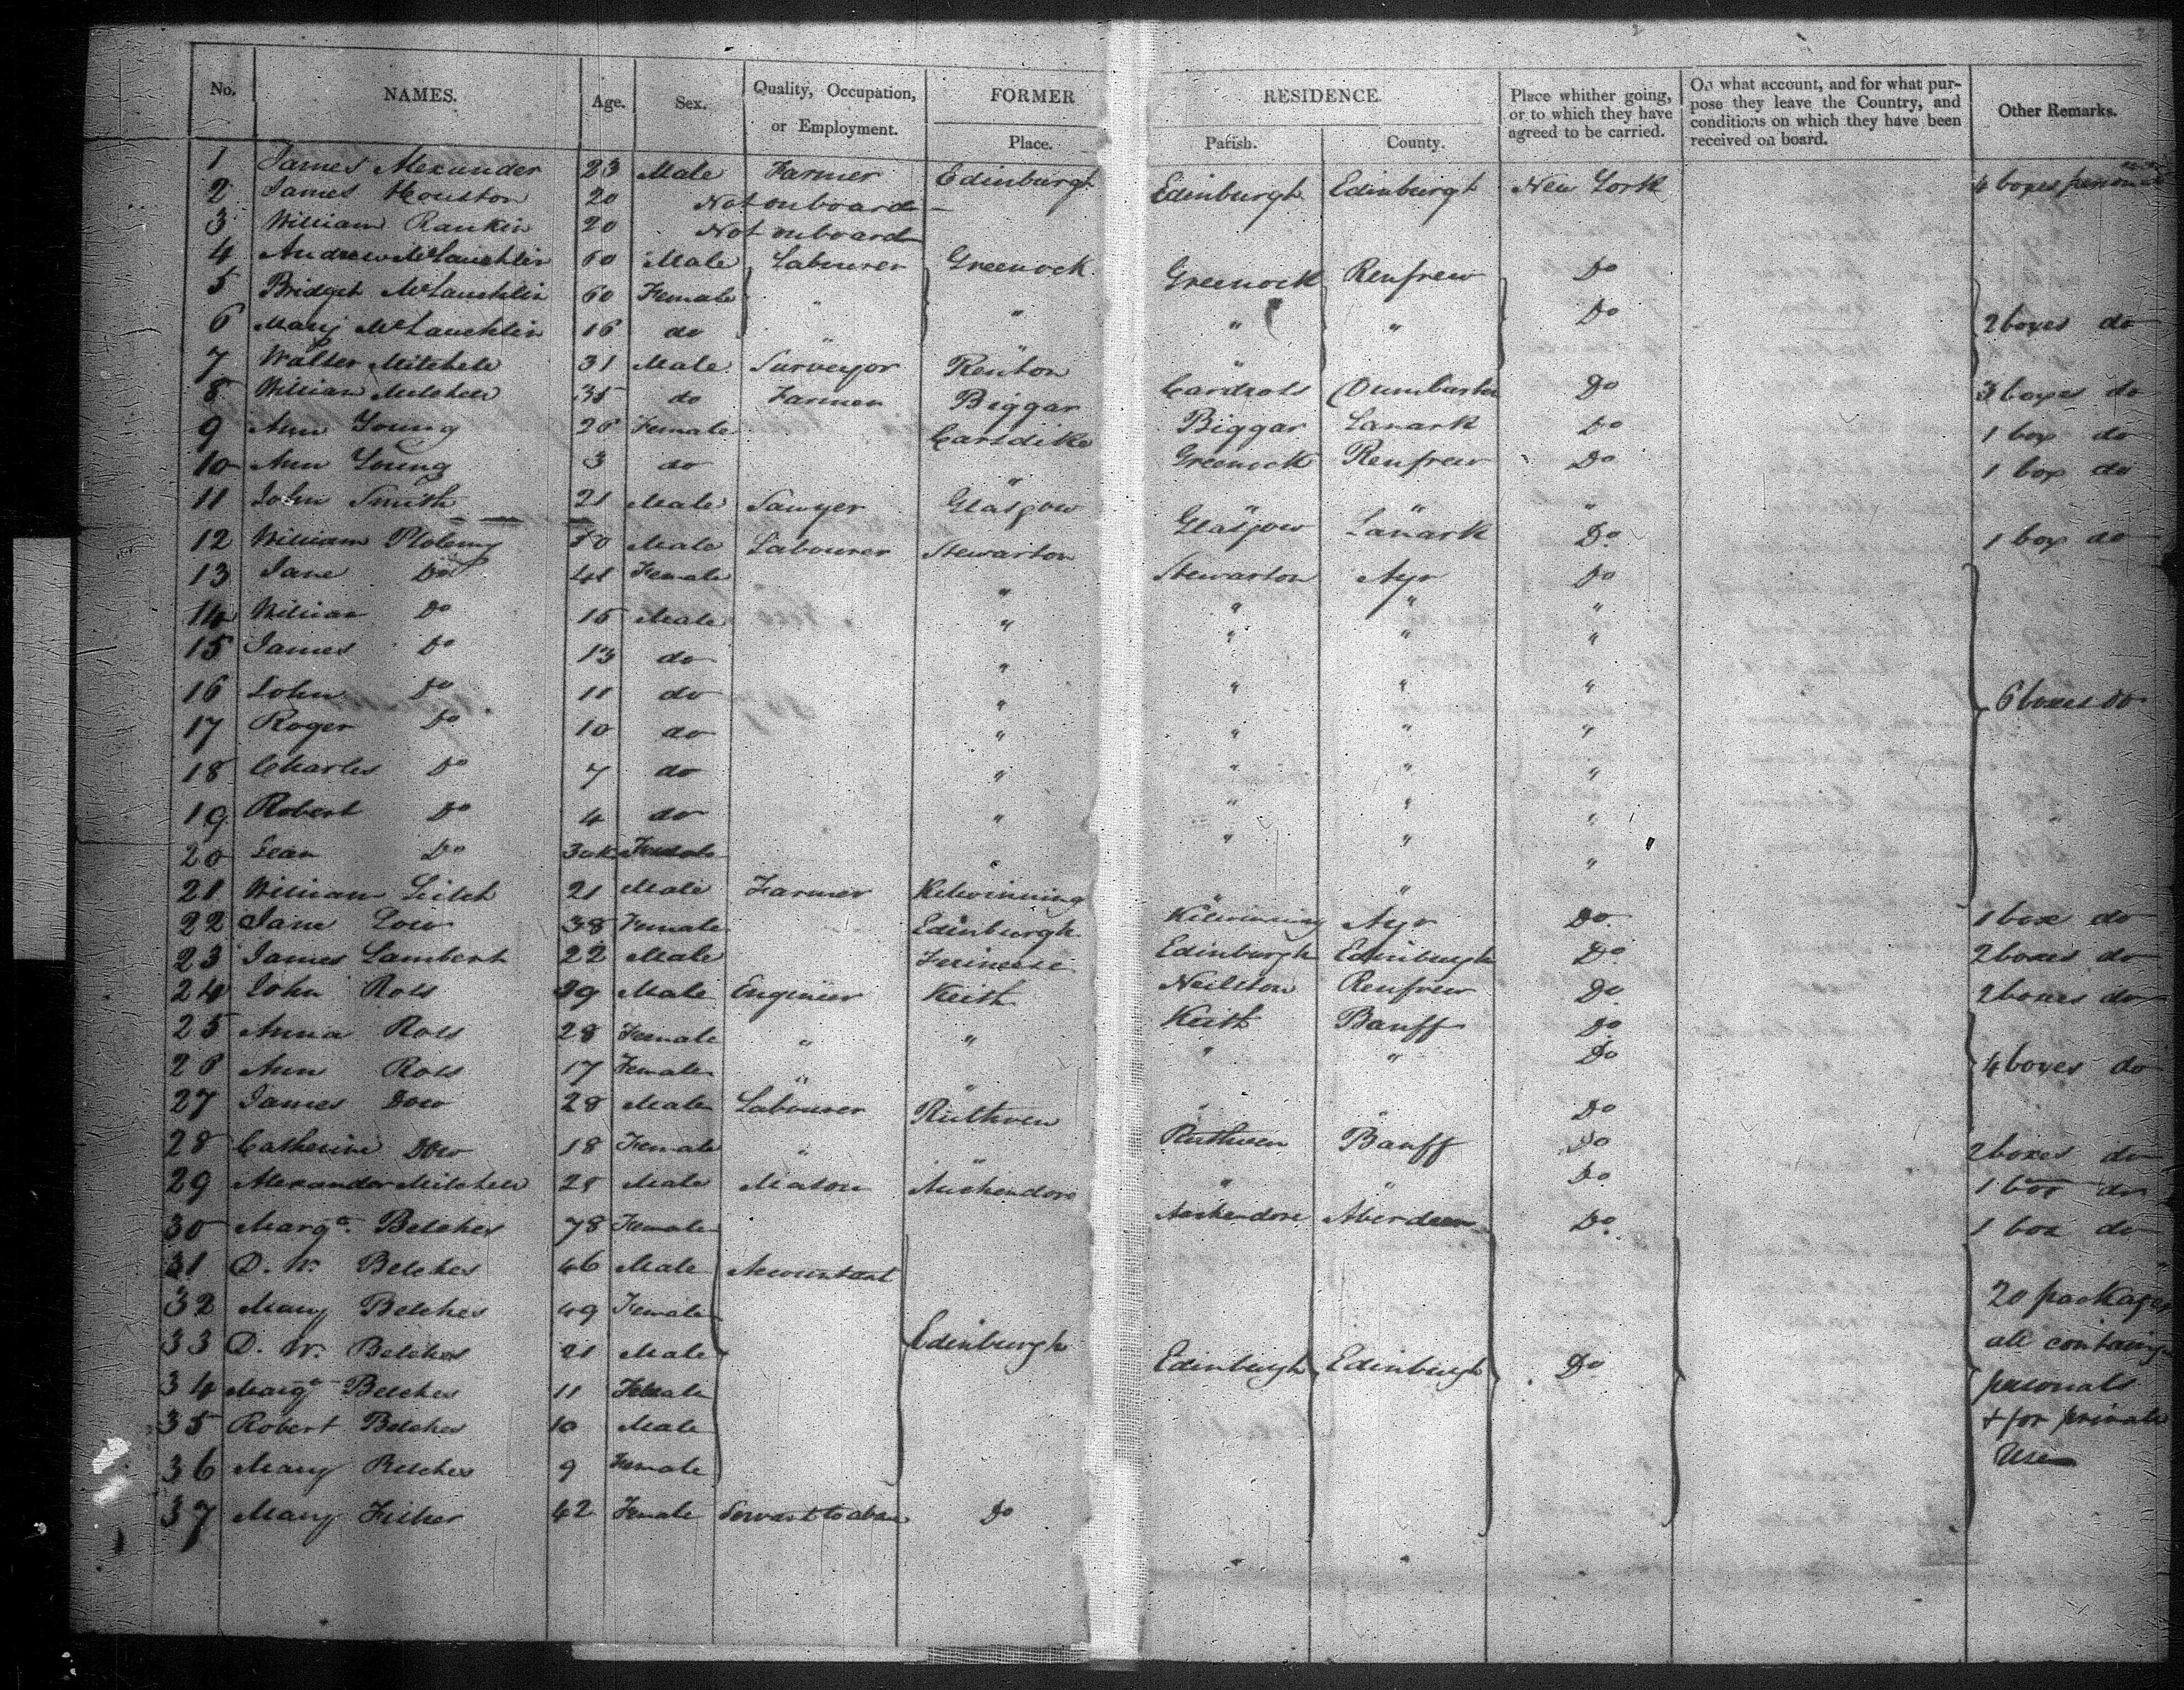 No. NAMES. Age. Sex. Quality, Occupation, or Employment. FORMER Place. RESIDENCE. Parish. County. Place whither going, or to which they have agreed to be carried. On what account, and for what purpose they leave the Country, and conditions on which they have been received on board. Other Remarks.
1 James Alexander 23 Male Farmer Edinburgh Edinburgh Edinburgh New York 4 boxes
2 James Houston 20 Not on board
3 William Rankin 20 Not on board
4 Andrew McLauchlin 60 Male Labourer Greenock Greenock Renfrew Do
5 Bridget McLauchlin 60 Female " " " " Do 2 boxes do
6 Mary McLauchlin 16 do " " "
7 Walter Mitchell 31 Male Surveyor Renton Cardross Dumbarton Do 3 boxes do
8 William Mitchell 35 do Farmer Biggar Biggar Lanark Do 1 box do
9 Ann Young 26 Female Carsdike Greenock Renfrew Do 1 box do
10 Ann Young 3 do " " " "
11 John Smith 21 Male Sawyer Glasgow Glasgow Lanark Do 1 box do
12 William Ptolemy 50 Male Labourer Stewarton Stewarton Ayr Do
13 Jane Do 41 Female " " " "
14 William Do 15 Male " " " "
15 James Do 13 do " " " "
16 John Do 11 do " " " " 6 boxes do
17 Roger Do 10 do " " " "
18 Charles Do 7 do " " " "
19 Robert Do 4 do " " " "
20 Jean Do Female " " " "
21 William Leitch 21 Male Farmer Kilwinning Kilwinning Ayr Do 1 box do
22 Jane Low 38 Female Edinburgh Edinburgh Edinburgh Do 2 boxes do
23 James Lambert 22 Male Neilston Renfrew Do 2 boxes do
24 John Ross 29 Male Engineer Keith Keith Banff Do
25 Anna Ross 28 Female " " " " Do 4 boxes do
26 Ann Ross 17 Female " " " " Do
27 James Dow 28 Male Labourer Ruthven Ruthven Banff Do 2 boxes do
28 Catherine Dow 18 Female " " " " Do 1 box do
29 Alexander Mitchell 25 Male Mason Auchendore Auchendore Aberdeen Do 1 box do
30 Margt. Belches 78 Female
31 D. W. Belches 46 Male Accountant 20 packages
32 Mary Belches 49 Female all containing
33 D. W. Belches 21 Male Edinburgh Edinburgh Edinburgh Do personals
34 Margt Belches 11 Female & for private
35 Robert Belches 10 Male Use
36 Mary Belches 9 Female
37 Mary Fisher 42 Female Servant to above Do " "